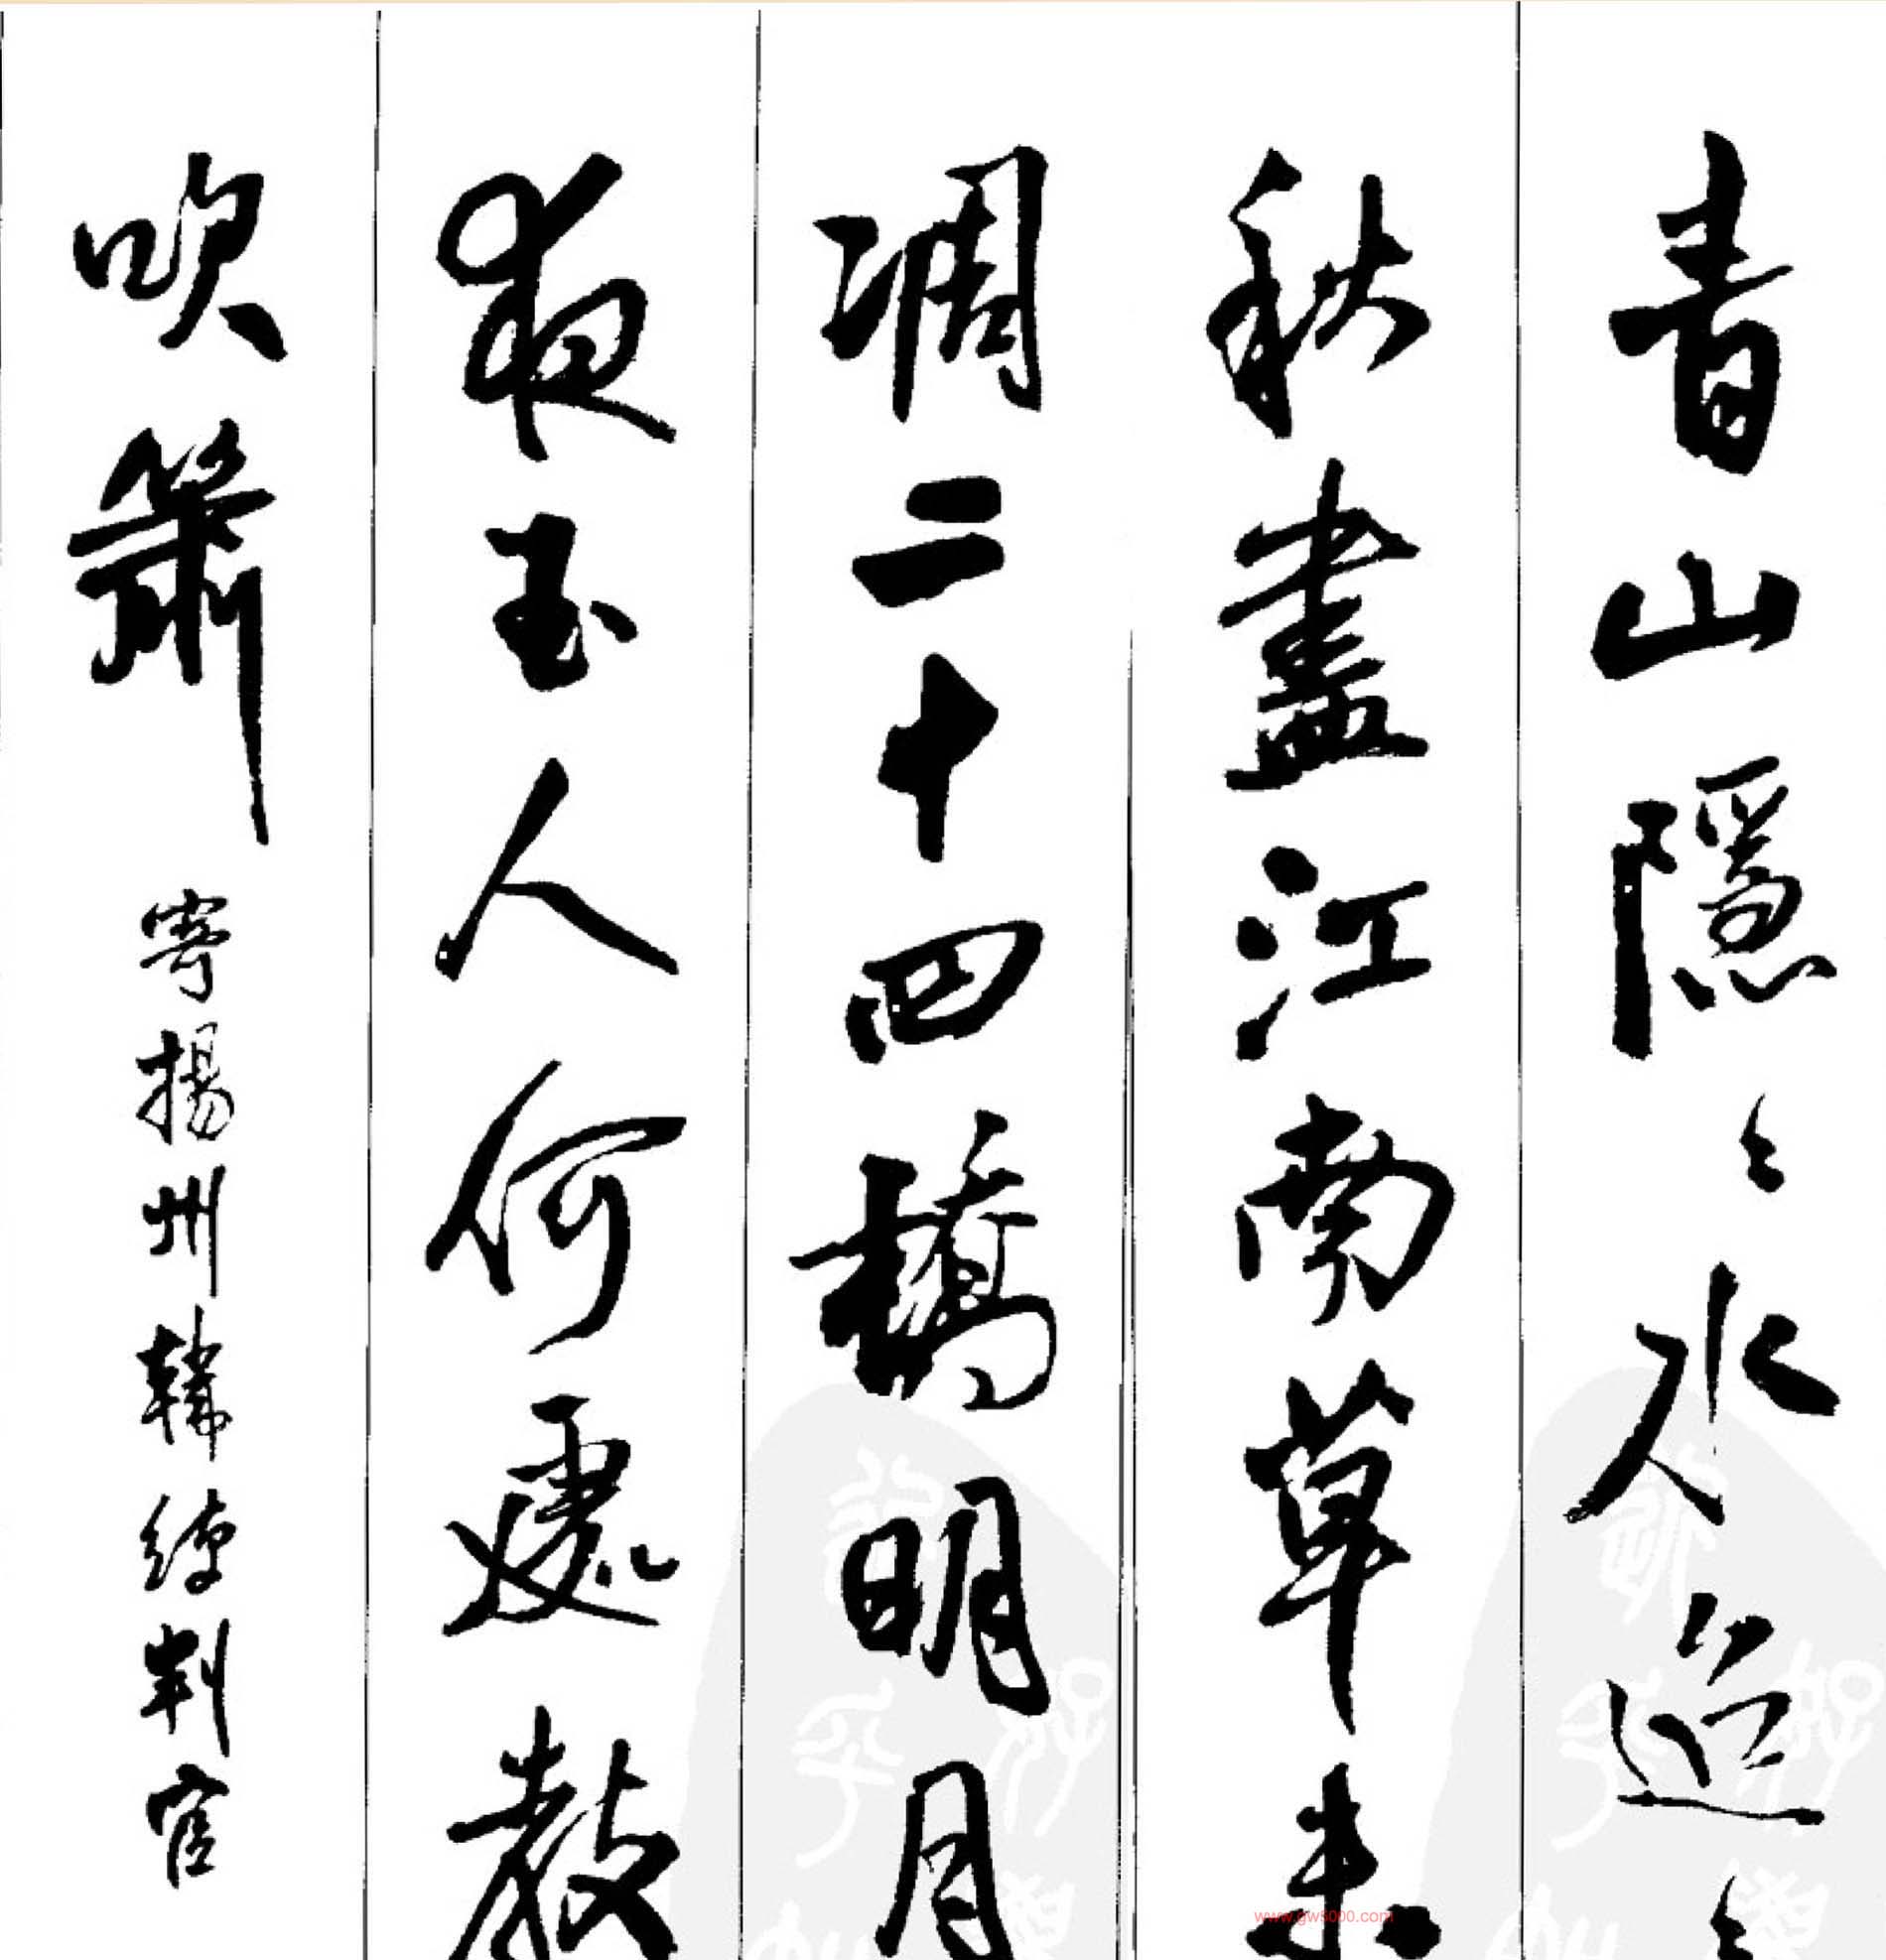 青山隱々水迢々
秋盡江南草未
凋二十四橋明月
夜玉人何處教
吹簫 寄揚州韓綽判官
www.gw5000.com